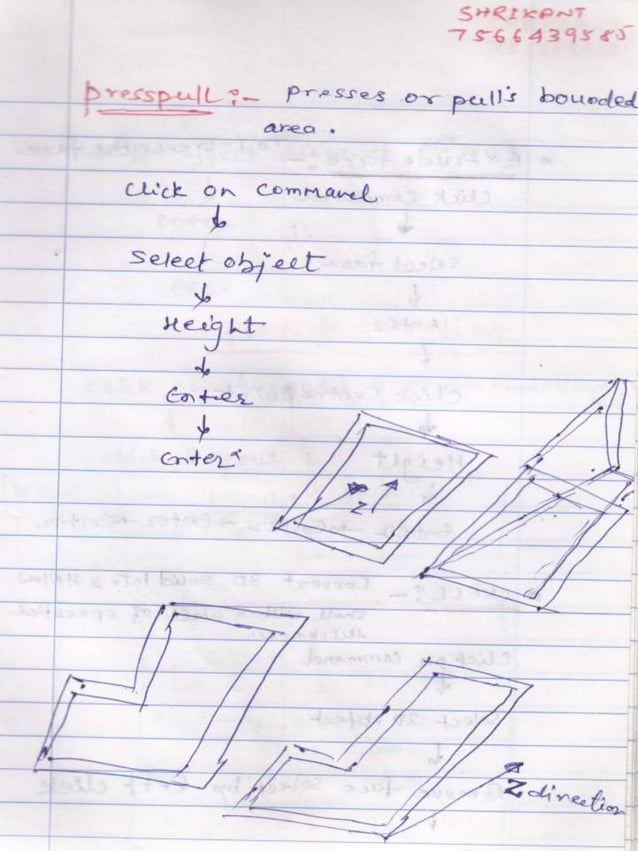 SHRIKANT
7566439585
Presspull :- Presses or pull's bounded
area.
Click on Command
Select object
Height
Enter
Enter
Z
Z direction